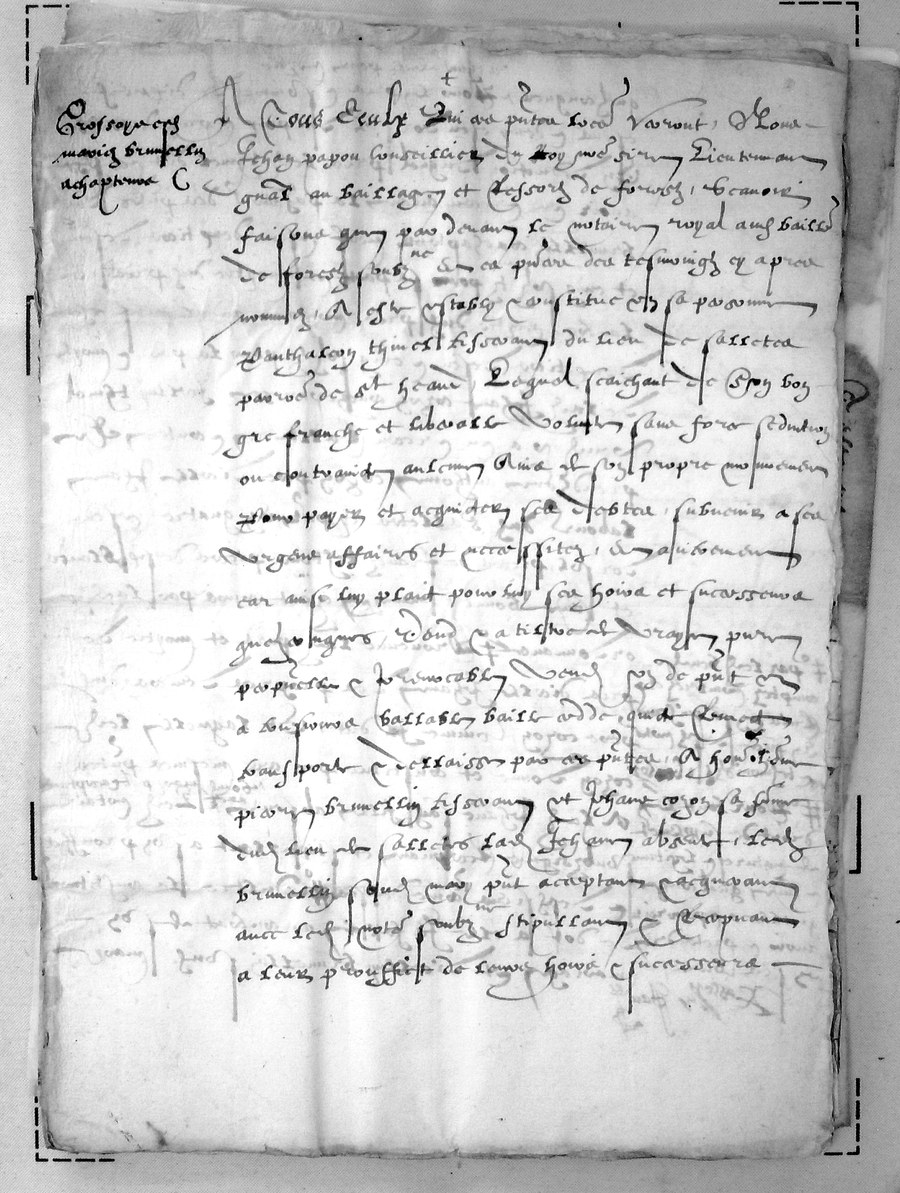 Grossoye est
mariez brunellin
achapteurs
A Tous Ceulx Qui ces pntes lres Verront, Nous
Jehan papon Conseillier du Roy nre sire Lieutenant
gnal au baillage et Ressort de forestz, scavoir
faisons que par devant le notaire royal aud baille
de forestz soubzne et es pnces des tesmoingz cy apres
nommez, A este estably constitue en sa personne
Panthaleon thinel tisserant du lieu de salletes
parroe de st heand, Lequel saichant de son bon
gre franche et liberalle volunte sans force seduction
ou contraincte aulcune Ains de son propre mouvement
Pour payer et acquicter ses debtes, subvenir a ses
urgens affaires et necessitez, et aultrement
car ainsi luy plaict pour luy ses hoirs et successeurs
quelzconques, Vend et a tiltre de vraye pure
perpetuelle et Irrevocable vende de pnt et
a tousiours vallable baille cedde quicte Remect
transporte et dellaisse par ces pntes, A hon
pierre brunellin tisserant et Jehanne sa femme
dud lieu de salletes lad Jehanne absente, led
brunellin sond mary pnt aceptant et acquerant
avec led notre soubzne stipullant et Recepvant
a leur prouffict de leurs hoirs et successeurs